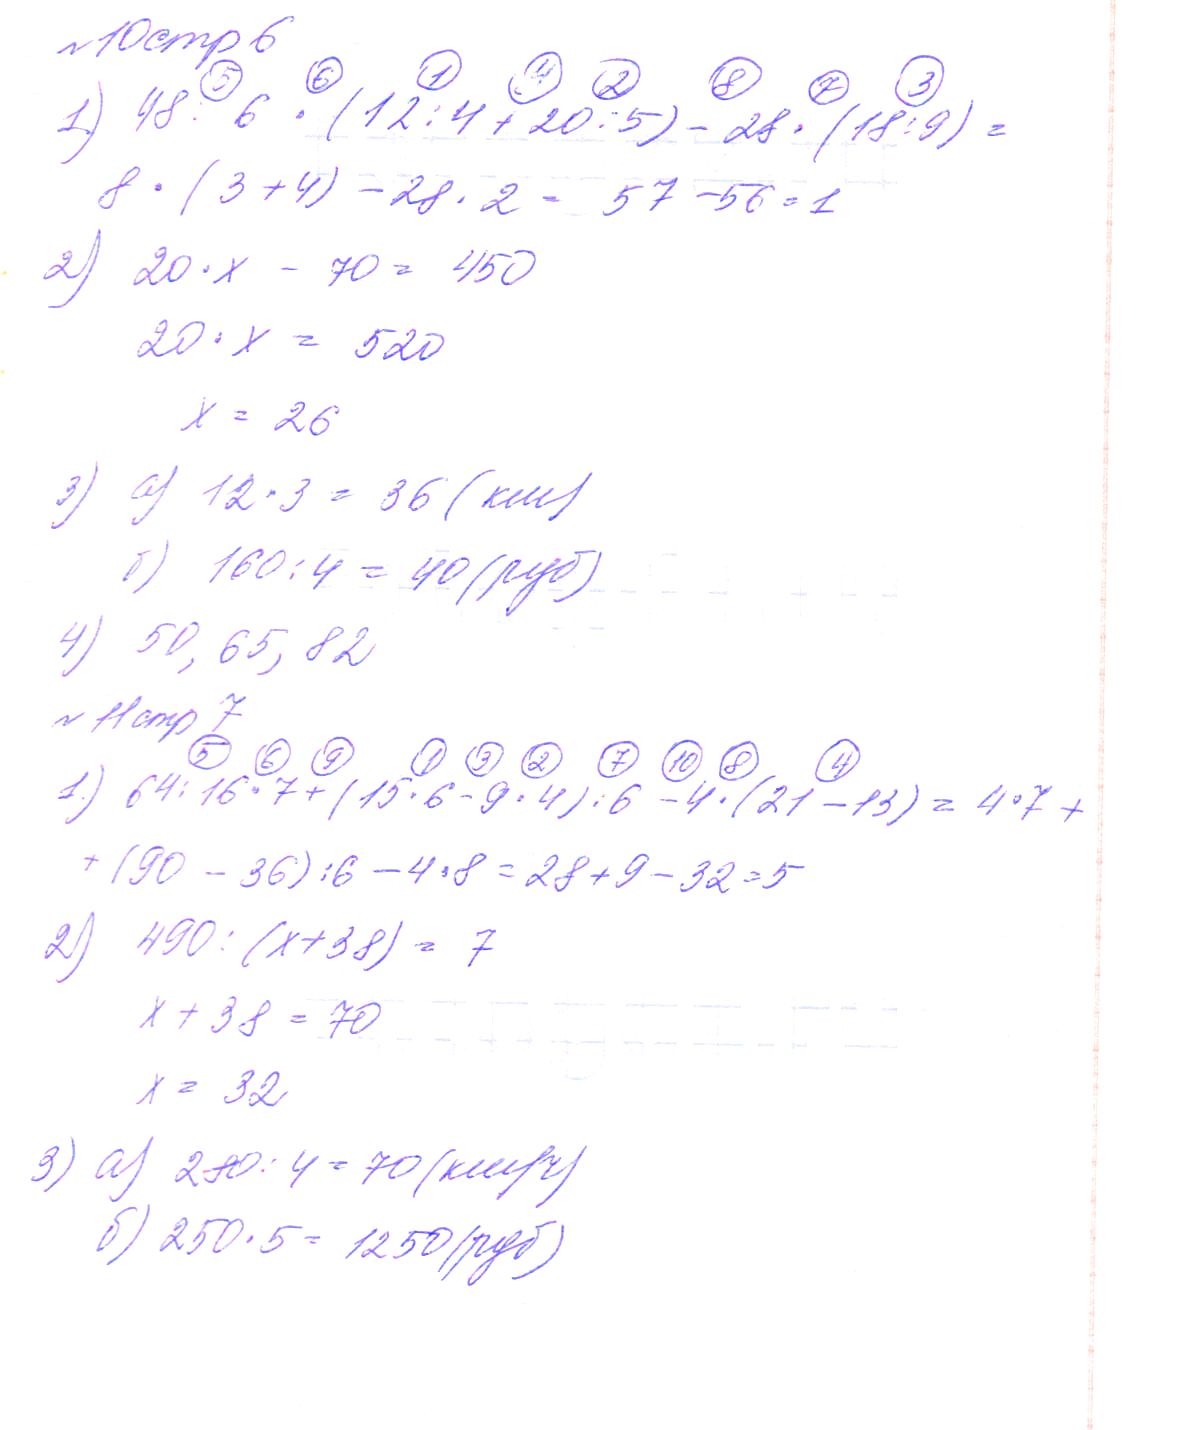 №10 стр 6
⑤ ⑥ ① ④ ② ⑧ ⑦ ③
1) 48 : 6 · (12 : 4 + 20 : 5) - 28 · (18 : 9) =
8 · (3 + 4) - 28 · 2 = 57 - 56 = 1
2) 20 · x - 70 = 450
20 · x = 520
x = 26
3) а) 12 · 3 = 36 (км)
б) 160 : 4 = 40 (руб)
4) 50, 65, 82
№ 11 стр 7
⑤ ⑥ ⑨ ① ③ ② ⑦ ⑩ ⑧ ④
1.) 64 : 16 · 7 + (15 · 6 - 9 · 4) : 6 - 4 · (21 - 13) = 4 · 7 +
+ (90 - 36) : 6 - 4 · 8 = 28 + 9 - 32 = 5
2) 490 : (x + 38) = 7
x + 38 = 70
x = 32
3) а) 280 : 4 = 70 (км/ч)
б) 250 · 5 = 1250 (руб)